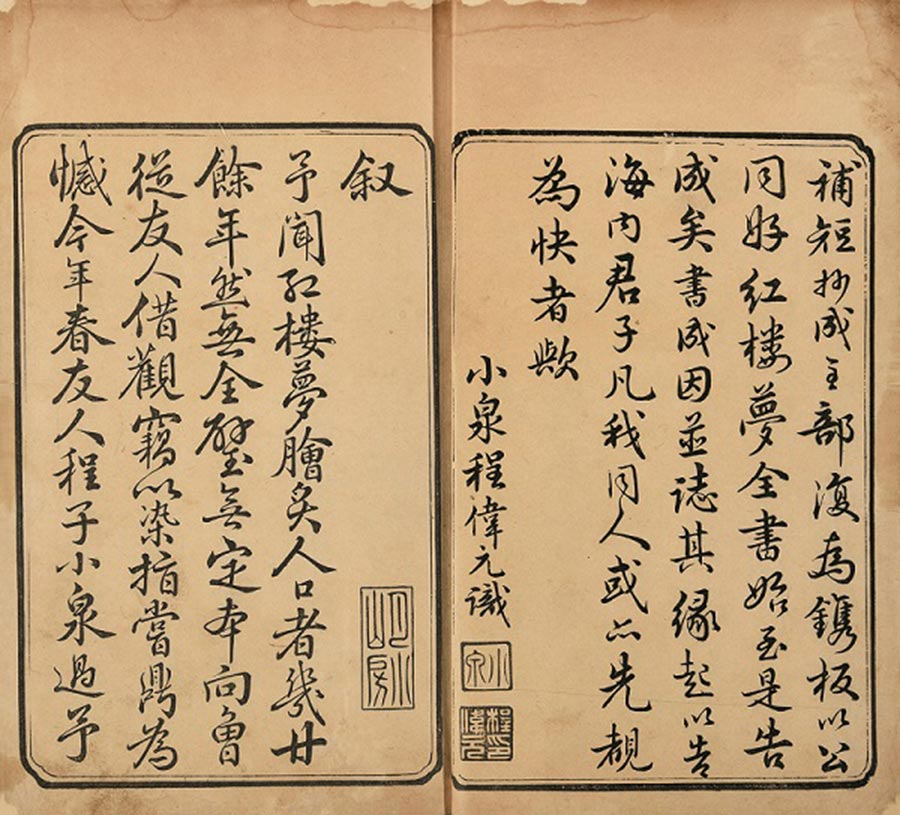 補短抄成全部復為鐫板以公
同好紅樓夢全書始至是告
成矣書成因並誌其緣起以告
海內君子凡我同人或亦先覩
為快者歟
小泉程偉元識
小泉
程偉元印
叙
予聞紅樓夢膾炙人口者幾廿
餘年然無全璧無定本向曾
從友人借觀竊以染指嘗鼎為
憾今年春友人程子小泉過予